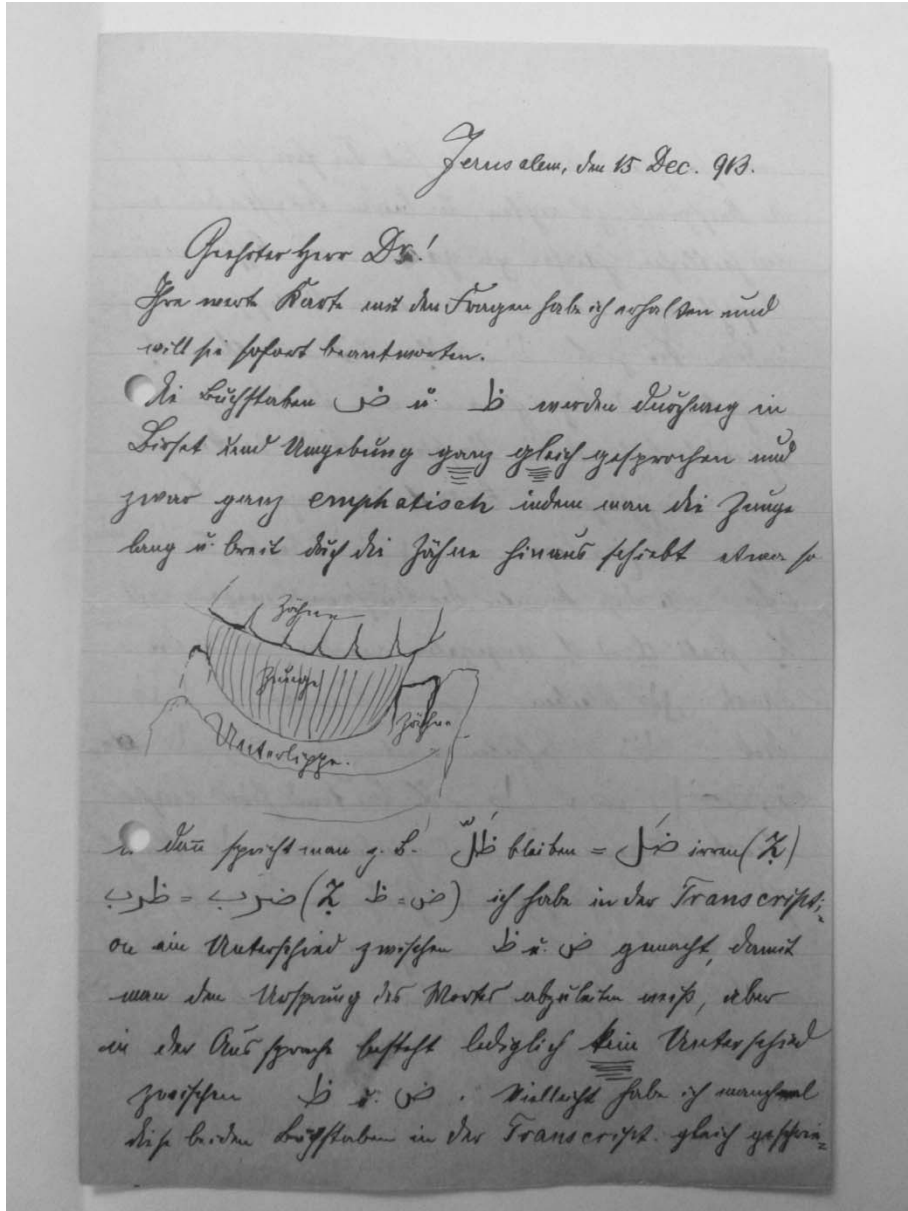 Jerusalem, den 15 Dec. 913.
Geehrter Herr Dr!
Ihre werte Karte mit den Fragen habe ich erhalten und
will sie sofort beantworten.
Die Buchstaben ض u. ظ werden durchweg in
Birset und Umgebung ganz gleich gesprochen und
zwar ganz emphatisch indem man die Zunge
lang u. breit durch die Zähne hinaus schiebt etwa so
Zähne
Zunge
Zähne
Unterlippe.
u. dañ spricht man z. B. ظَلّ bleiben = ضَل irren (Ẓ)
ظرب = ضرب (Ẓ ض = ظ) ich habe in der Transcripti=
on ein Unterschied zwischen ظ u. ض gemacht, damit
man den Ursprung des Wortes abzuleiten weiß, aber
in der Aussprache besteht lediglich kein Unterschied
zwischen ظ u. ض. Vielleicht habe ich manchmal
diese beiden Buchstaben in der Transcript. gleich geschrie=